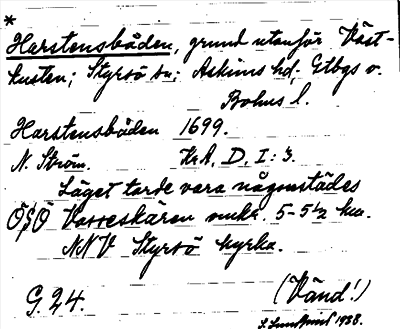 *
Harstensbåden, grund utanför Väst-
kusten; Styrsö sn; Askims hd; Gtbgs o.
Bohus l.
Harstensbåden 1699.
N. Ström. KrA, D, I: 3.
Läget torde vara någonstädes
ÖSÖ Varreskären omkr. 5-5½ km.
NNV Styrsö kyrka.
G. 24. (Vänd!)
1938.